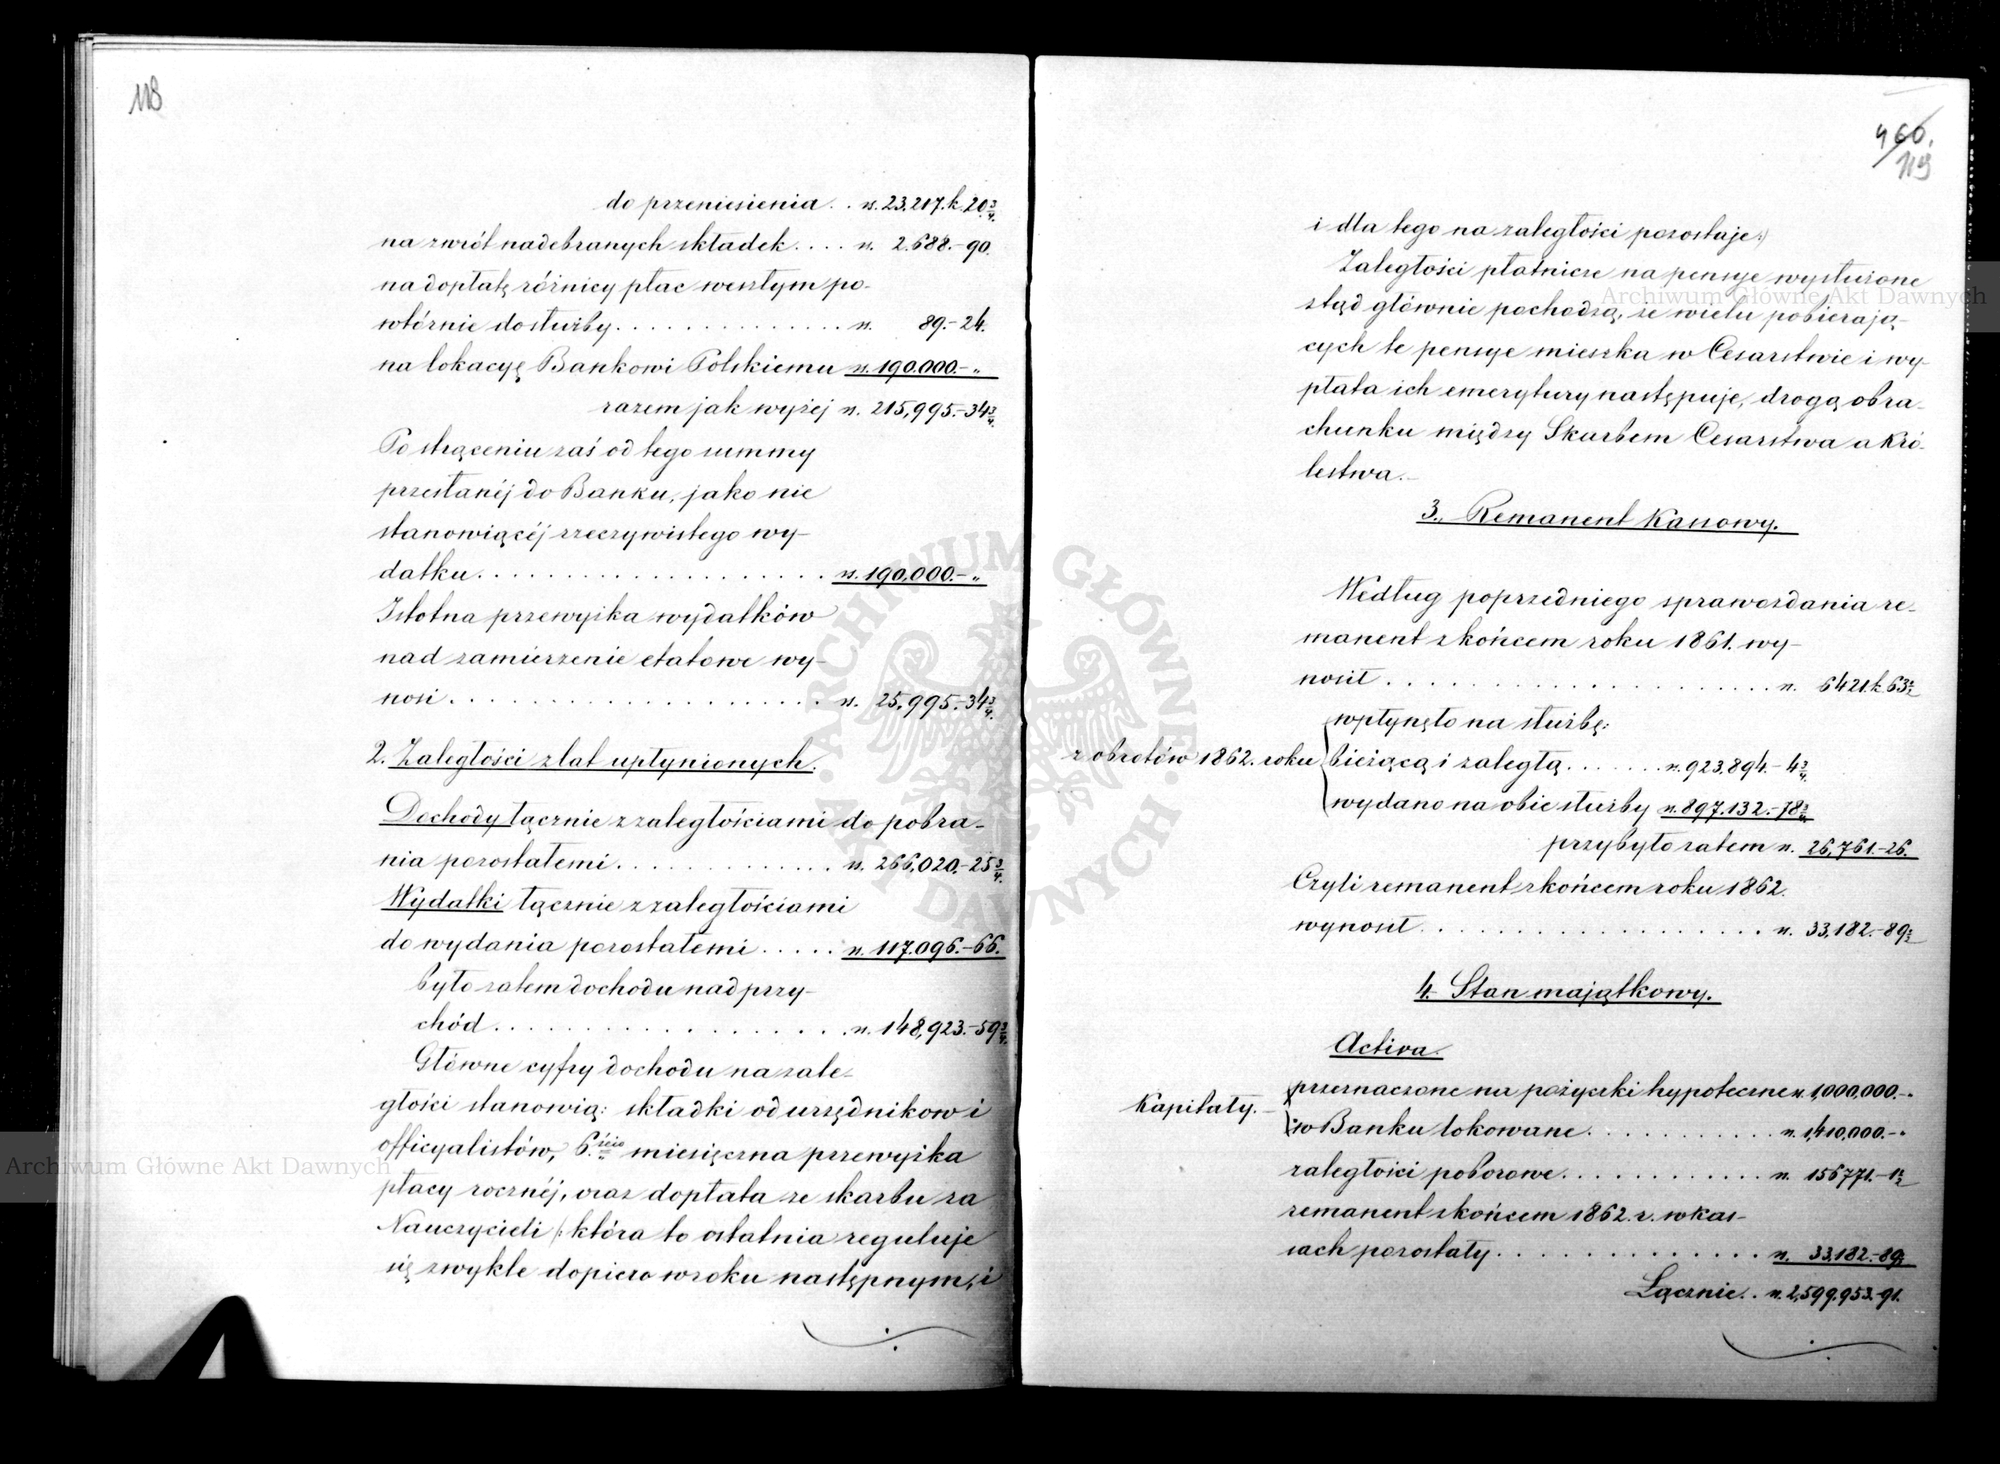 118
do przeniesienia . . rs. 23,217. k. 20 3/4.
na zwrót nadebranych składek . . . . rs. 2.688.-90.
na dopłatę różnicy płac weszłym po-
wtórnie do służby . . . . . . . . . . . . . . rs. 89.-24.
na lokacyę Bankowi Polskiemu rs. 190.000.- „
razem jak wyżej rs. 215,995.-34 3/4.
Po strąceniu zaś od tego summy
przesłanéj do Banku, jako nie
stanowiącéj rzeczywistego wy-
datku . . . . . . . . . . . . . . . . . . . . rs. 190.000.- „
Istotna przewyżka wydatków
nad zamierzenie etatowe wy-
nosi . . . . . . . . . . . . . . . . . . . . . rs. 25,995.-34 3/4.
2. Zaległości z lat upłynionych.
Dochody łącznie z zaległościami do pobra-
nia pozostałemi . . . . . . . . . . . . . rs. 266,020.-25 3/4.
Wydatki łącznie z zaległościami
do wydania pozostałemi . . . . . rs. 117.096.-66.
było zatem dochodu nad przy-
chód . . . . . . . . . . . . . . . . . . . . rs. 148,923.-59 3/4.
Główne cyfry dochodu na zale-
głości stanowią: składki od urzędnikow i
officyalistów, 6.ścio miesięczna przewyżka
płacy rocznéj, oraz dopłata ze skarbu za
Nauczycieli /: która to ostatnia reguluje
się zwykle dopiero w roku następnym, i
460.
119
i dla tego na zaległości pozostaje :/
Zaległości płatnicze na pensye wysłużone
ztąd głównie pochodzą, że wielu pobierają-
cych te pensye mieszka w Cesarstwie i wy-
płata ich emerytury następuje, drogą obra-
chunku między Skarbem Cesarstwa a Kró-
lestwa.-
3., Remanent Kassowy.
Według poprzedniego sprawozdania re-
manent z końcem roku 1861. wy-
nosił . . . . . . . . . . . . . . . . . . . . . rs. 6421. k. 63 1/2
wpłynęło na służbę:
z obrotów 1862. roku bieżącą i zaległą . . . . . . . rs. 923,894.-4 3/4.
wydano na obie służby rs. 897.132.-78 3/4
przybyło zatem rs. 26,761.-26.
Czyli remanent z końcem roku 1862.
wynosił . . . . . . . . . . . . . . . . . . . rs. 33,182.-89 1/2
4. Stan majątkowy.
Activa.
przeznaczone na pożyczki hypoteczne rs. 1,000,000.-„
Kapitały.- w Banku lokowane . . . . . . . . . . . rs. 1,410,000.-„
zaległości poborowe . . . . . . . . . . . . rs. 156771.-1 1/2
remanent z końcem 1862. r. w kas-
sach pozostały . . . . . . . . . . . . . . . rs. 33,182.-89 1/2
Łącznie . . rs. 2,599.953.-91.
Archiwum Główne Akt Dawnych
Archiwum Główne Akt Dawnych
ARCHIWUM GŁÓWNE AKT DAWNYCH